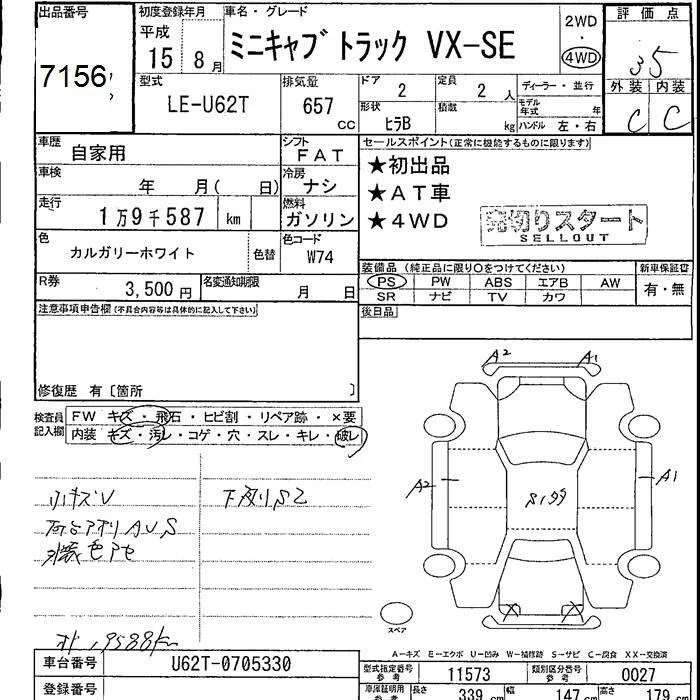 出品番号
7156
初度登録年月
平成
15 8月
車名・グレード
ミニキャブトラック VX-SE
2WD
・
4WD
評価点
35
外装 内装
C C
型式
LE-U62T
排気量
657
CC
ドア
2
定員
2人
形状
ヒラB
積載
kg
ディーラー・並行
モデル年式 年
ハンドル 左・右
車歴
自家用
シフト
FAT
車検
年 月( 日)
冷房
ナシ
走行
1万9千587 km
燃料
ガソリン
色
カルガリーホワイト
色替
色コード
W74
R券
3,500円
名変通知期限
月 日
セールスポイント(正常に機能するものに限ります)
★初出品
★AT車
★4WD
売切りスタート
SELLOUT
装備品(純正品に限り○をつけてください)
新車保証書
PS PW ABS エアB AW
有・無
SR ナビ TV カワ
後日品
注意事項申告欄(不具合内容等は具体的に記入して下さい)
修復歴 有〔箇所 〕
検査員記入欄
FW キズ・飛石・ヒビ割・リペア跡・×要
内装 キズ・汚レ・コゲ・穴・スレ・キレ・破レ
小キズU
下廻りS2
AUS
外装色アセ
A2 A1
A2 A1
スペア
A-キズ E-エクボ U-凹み W-補修跡 S-サビ C-腐食 XX-交換済
車台番号
U62T-0705330
登録番号
型式指定番号
参考
11573
類別区分番号
参考
0027
車庫証明用
参考
長さ 339cm
幅 147cm
高さ 179cm